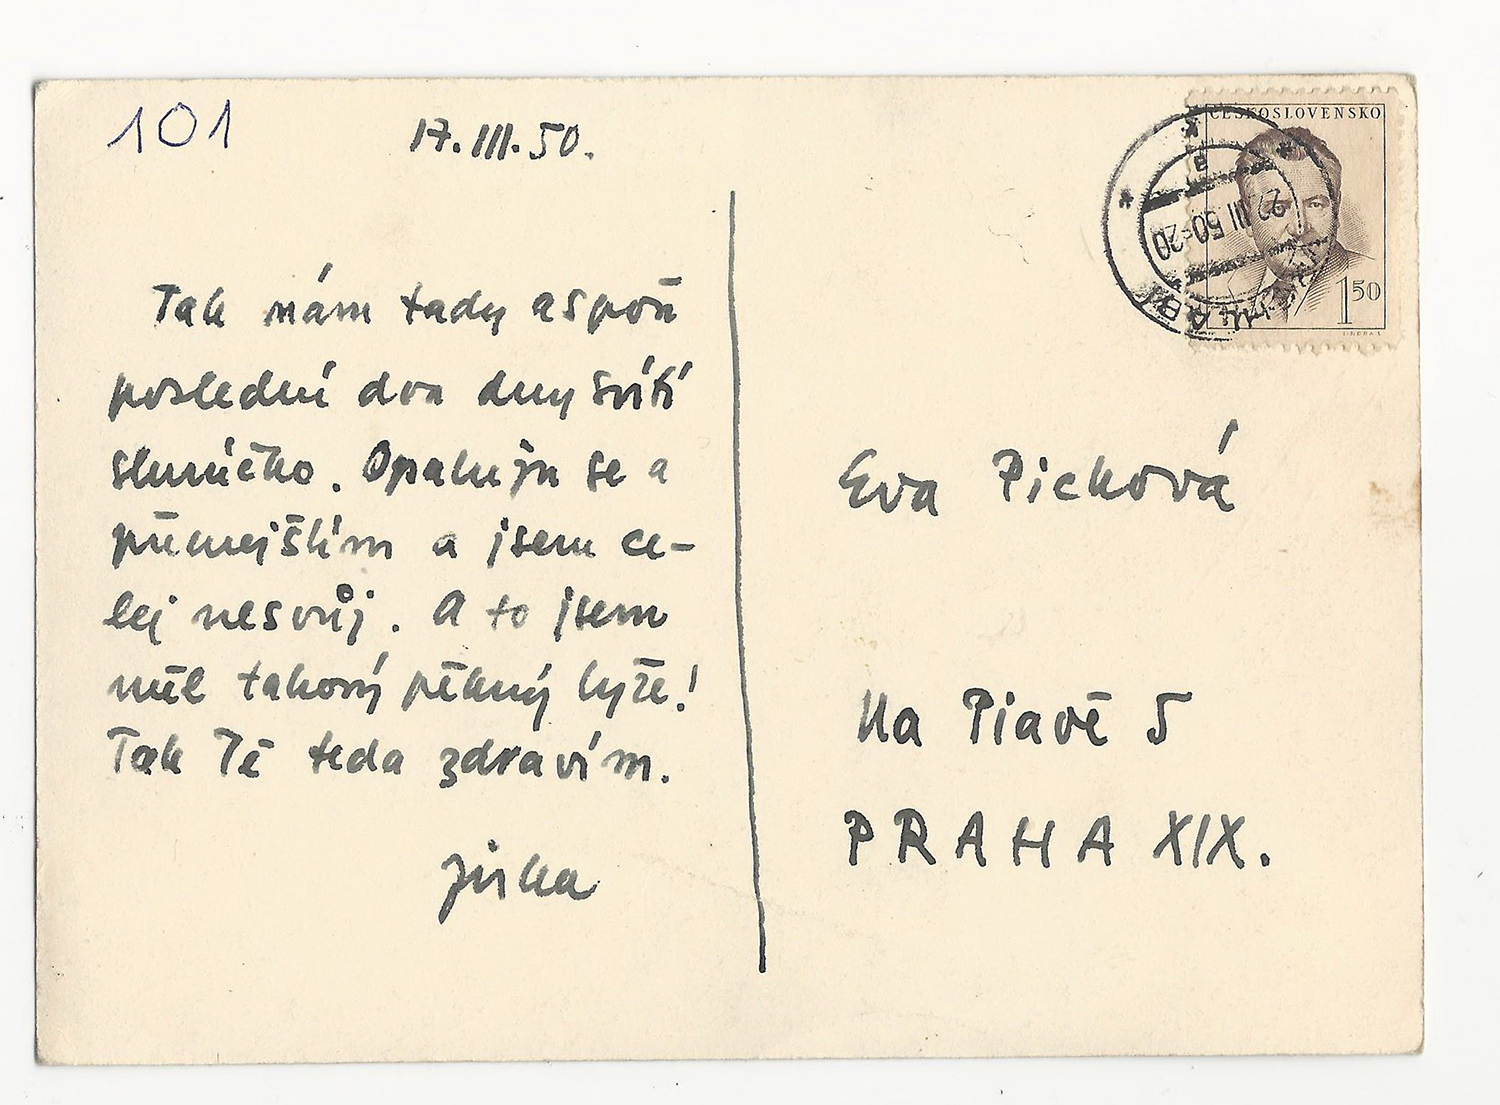 101
17.III.50.
Tak nám tady aspoň
poslední dva dny svítí
sluníčko. Opaluju se a
přemejšlím a jsem ce-
lej nesvůj. A to jsem
měl takový pěkný lyže!
Tak Tě teda zdravím.
Jirka
ČESKOSLOVENSKO
1 50
III 50-20
Eva Picková
Na Piavě 5
PRAHA XIX.